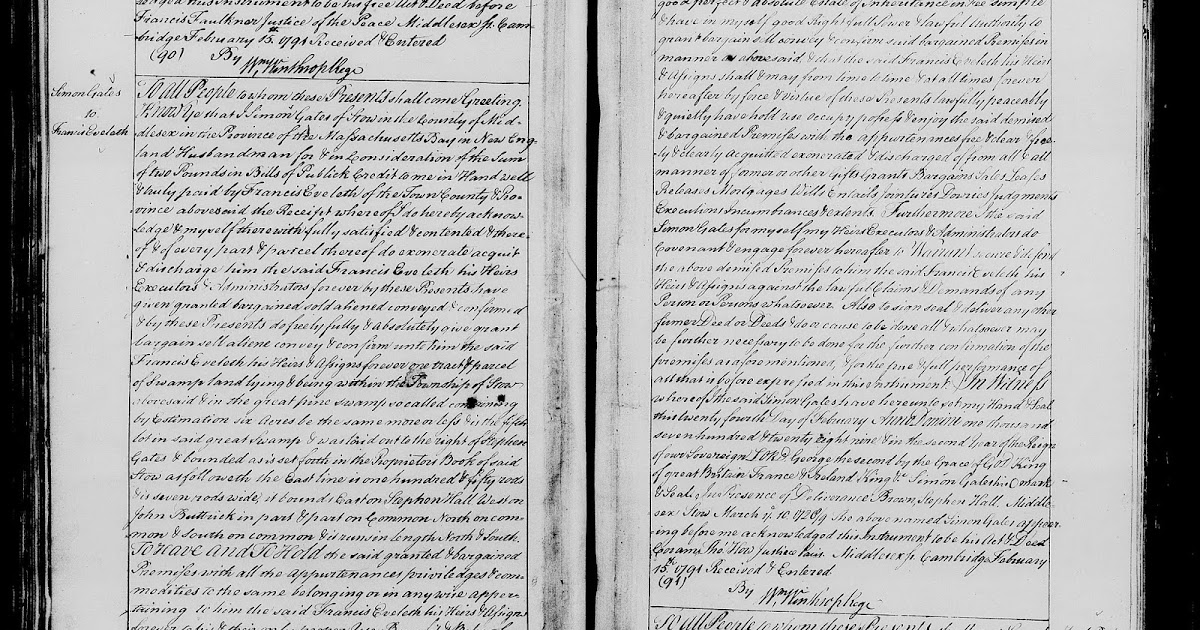 Francis Faulkner Justice of the Peace Middlesex ss. Cam-
bridge February 15th. 1791 Received & Entered
(90) By Wm. Winthrop Rege
Simon Gates
to
Francis Eveleth
To all People to whom these Presents shall come Greeting.
Know Ye that I Simon Gates of Stow in the County of Mid-
dlesex in the Province of the Massachusetts Bay in New Eng-
land Husbandman for & in Consideration of the Sum
of two Pounds in Bills of Publick Credit to me in Hand well
& truly paid by Francis Eveleth of the Town County & Pro-
vince abovesaid the Receipt whereof I do hereby acknow-
ledge & myself therewith fully satisfied & contented & there-
of & of every part & parcel thereof do exonerate acquit
& discharge him the said Francis Eveleth his Heirs
Executors & Administrators forever by these Presents have
given granted bargained sold aliened conveyed & confirmed
& by these Presents do freely fully & absolutely give grant
bargain sell aliene convey & confirm unto him the said
Francis Eveleth his Heirs & Assigns forever one tract & parcel
of Swamp land lying & being within the Township of Stow
abovesaid & in the great pine swamp so called containing
by Estimation six Acres be the same more or less & is the fifth
lot in said great Swamp & was laid out to the right of Stephen
Gates & bounded as is set forth in the Proprietors Book of said
Stow as followeth the East line is one hundred & fifty rods
& is seven rods wide, it bounds East on Stephen Hall West on
John Buttrick in part & part on Common North on com-
mon & South on common & it runs in length North & South.
To Have and To Hold the said granted & bargained
Premises with all the Appurtenances priviledges & com-
modities to the same belonging or in any wise apper-
taining to him the said Francis Eveleth his Heirs & Assigns
good perfect & absolute Estate of Inheritance in Fee simple
& have in myself good Right full Power & lawful Authority to
grant bargain sell convey & confirm said bargained Premises in
manner as abovesaid, & that the said Francis Eveleth his Heirs
& Assigns shall & may from time to time & at all times forever
hereafter by force & virtue of these Presents lawfully peaceably
& quietly have hold use occupy possess & enjoy the said demised
& bargained Premises with the appurtenances free & clear & free-
ly & clearly acquitted exonerated & discharged of from all & all
manner of former or other Gifts Grants Bargains Sales Leases
Releases Mortgages Wills Entails Jointures Dowries Judgments
Executions Incumbrances & extents. Furthermore I the said
Simon Gates for myself my Heirs Executors & Administrators do
Covenant & engage forever hereafter to Warrant secure & defend
the above demised Premises to him the said Francis Eveleth his
Heirs & Assigns against the lawful Claims & Demands of any
Person or Persons whatsoever. Also to sign seal & deliver any other
furner Deed or Deeds & do or cause to be done all & whatsoever may
be further necessary to be done for the further confirmation of the
premises as aforementioned, & for the true & full performance of
all that is before expressed in this Instrument. In Witness
whereof I the said Simon Gates have hereunto set my Hand & Seal
this twenty fourth Day of February Anno Domini one thousand
seven hundred & twenty eight nine & in the second Year of the Reign
of our Sovereign LORD George the second by the Grace of GOD King
of great Britain France & Ireland King &c. Simon Gates his mark
& Seal. In Presence of Deliverance Brown, Stephen Hall. Middle-
sex Stow March ye. 10. 1728/9 The above named Simon Gates appear-
ing before me acknowledged this Instrument to be his Act & Deed
Coram Tho. How Justice Pacis. Middlesex ss. Cambridge February
15th. 1791 Received & Entered
(91) By Wm. Winthrop Rege
To all People to whom these Presents